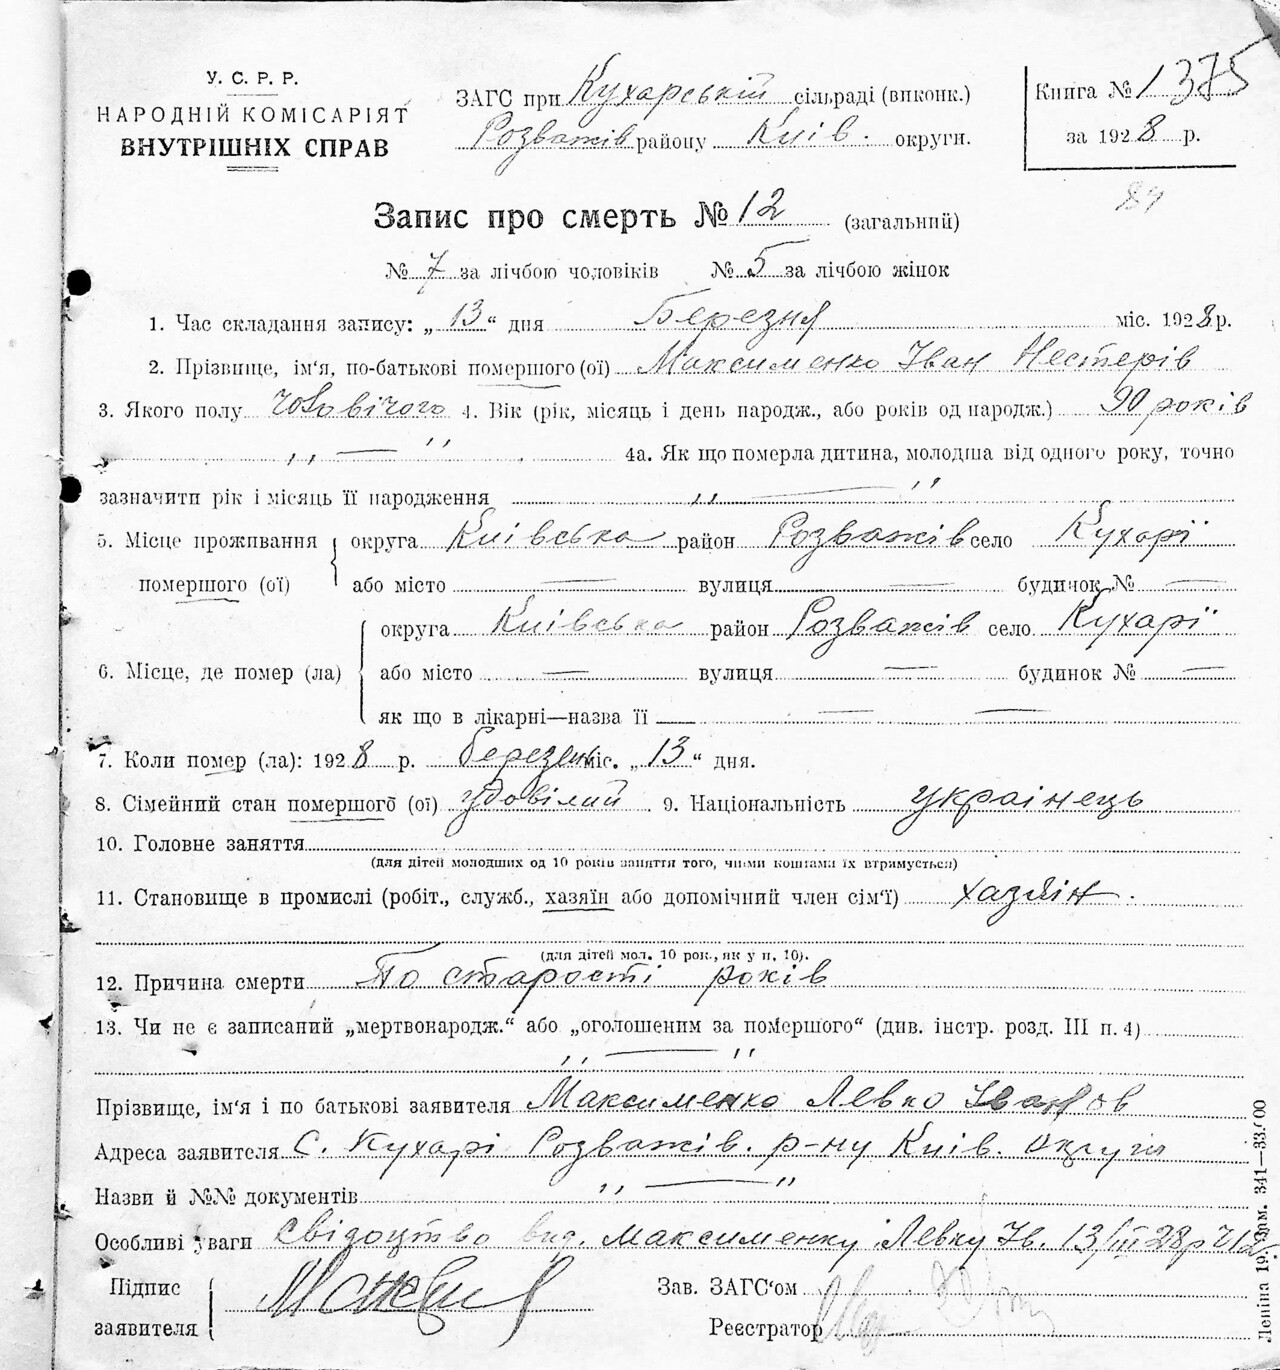 У. С. Р. Р.
НАРОДНІЙ КОМІСАРІЯТ
ВНУТРІШНІХ СПРАВ
ЗАГС при Кухарській сільраді (виконк.)
Розважів району Київ. округи.
Книга № 1375
за 1928 р.
84
Запис про смерть № 12 (загальний)
№ 7 за лічбою чоловіків № 5 за лічбою жінок
1. Час складання запису: „13“ дня Березня міс. 1928 р.
2. Прізвище, ім'я, по-батькові помершого (ої) Максименко Іван Нестерів
3. Якого полу чоловічого 4. Вік (рік, місяць і день народж., або років од народж.) 90 років
„ — “ 4а. Як що померла дитина, молодша від одного року, точно
зазначити рік і місяць її народження „ — “
5. Місце проживання помершого (ої) округа Київська район Розважів село Кухарі
або місто — вулиця — будинок № —
6. Місце, де помер (ла) округа Київська район Розважів село Кухарі
або місто — вулиця — будинок № —
як що в лікарні—назва її — —
7. Коли помер (ла): 1928 р. березень міс. „13“ дня.
8. Сімейний стан помершого (ої) удовілий 9. Національність українець
10. Головне заняття
(для дітей молодших од 10 років заняття того, чиїми коштами їх втримується)
11. Становище в промислі (робіт., служб., хазяїн або допомічний член сім'ї) хазяїн.
(для дітей мол. 10 рок., як у п. 10).
12. Причина смерти По старості років
13. Чи не є записаний „мертвонародж.“ або „оголошеним за помершого“ (див. інстр. розд. III п. 4)
„ — “
Прізвище, ім'я і по батькові заявителя Максименко Левко Іванов
Адреса заявителя С. Кухарі Розважів. р-ну Київ. округи
Назви й №№ документів „ — “
Особливі уваги Свідоцтво вид. Максименку Левку Ів. 13/III 28 р
Підпис
заявителя
Зав. ЗАГС'ом
Реєстратор